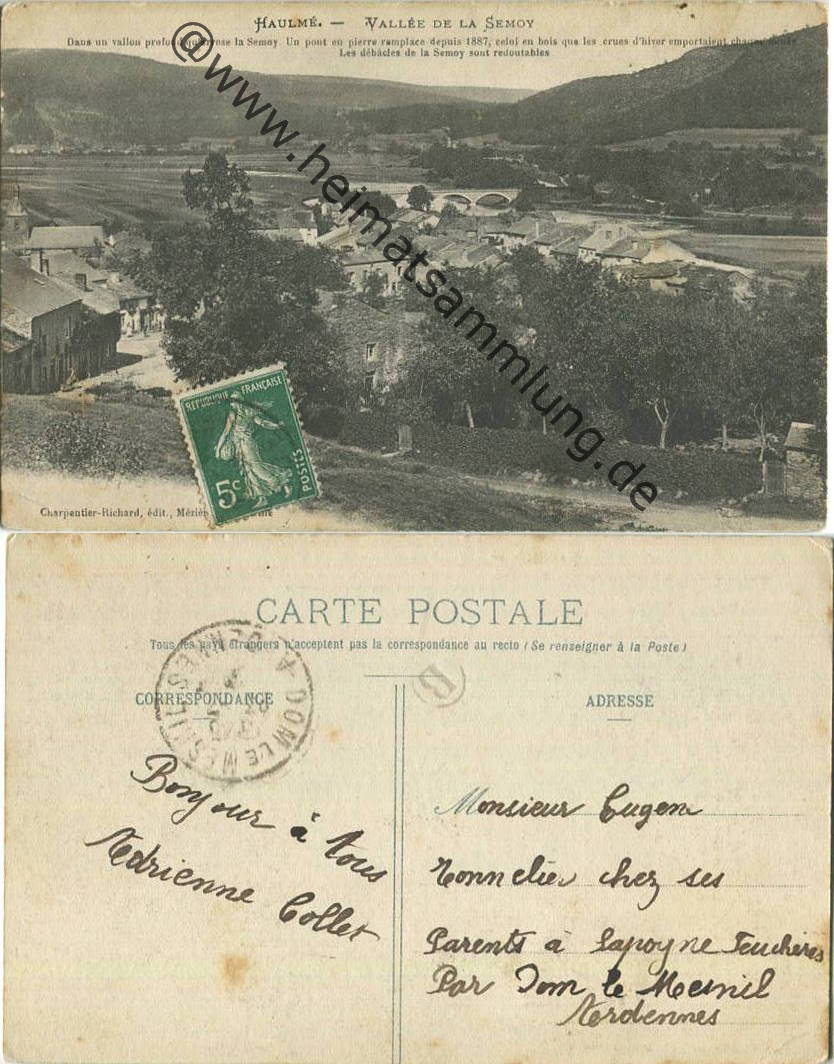 HAULMÉ. — VALLÉE DE LA SEMOY
Dans un vallon profond qu'arrose la Semoy. Un pont en pierre remplace depuis 1887, celui en bois que les crues d'hiver emportaient chaque
Les débâcles de la Semoy sont redoutables
@www.heimatsammlung.de
REPUBLIQUE FRANÇAISE
5c
POSTES
Charpentier-Richard, édit., Méziè
CARTE POSTALE
Tous les pays étrangers n'acceptent pas la correspondance au recto (Se renseigner à la Poste)
CORRESPONDANCE
ADRESSE
DOM LE MESNIL
B
Bonjour à tous
Adrienne Collet
Monsieur Eugene
Tonnelier chez ses
Parents à Sapogne Feuchères
Par Dom le Mesnil
Ardennes